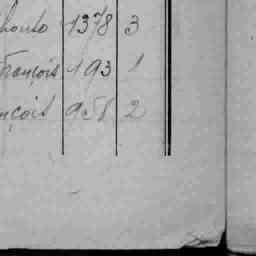 1378 3
François 193 1
nçois 958 2